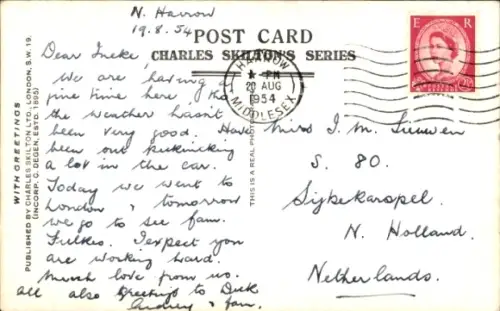 N. Harrow
19.8.54
POST CARD
CHARLES SKILTON'S SERIES
E R
HARROW
PM
20 AUG
1954
MIDDLESEX
Dear Ineke,
We are having a
fine time here, tho
the weather hasn't
been very good. Have
been out picknicking
a lot in the car.
Today we went to
London, tomorrow
we go to see fam.
I expect you
are working hard.
Much love from us.
all also Greetings to Dick
& fam.
Miss I. M. Leeuwen
S. 80.
Sijbekarspel.
N. Holland.
Netherlands.
WITH GREETINGS
PUBLISHED BY CHARLES SKILTON LTD., LONDON, S.W. 19.
(INCORP. O. DEGEN, ESTD. 1895)
THIS IS A REAL PHO